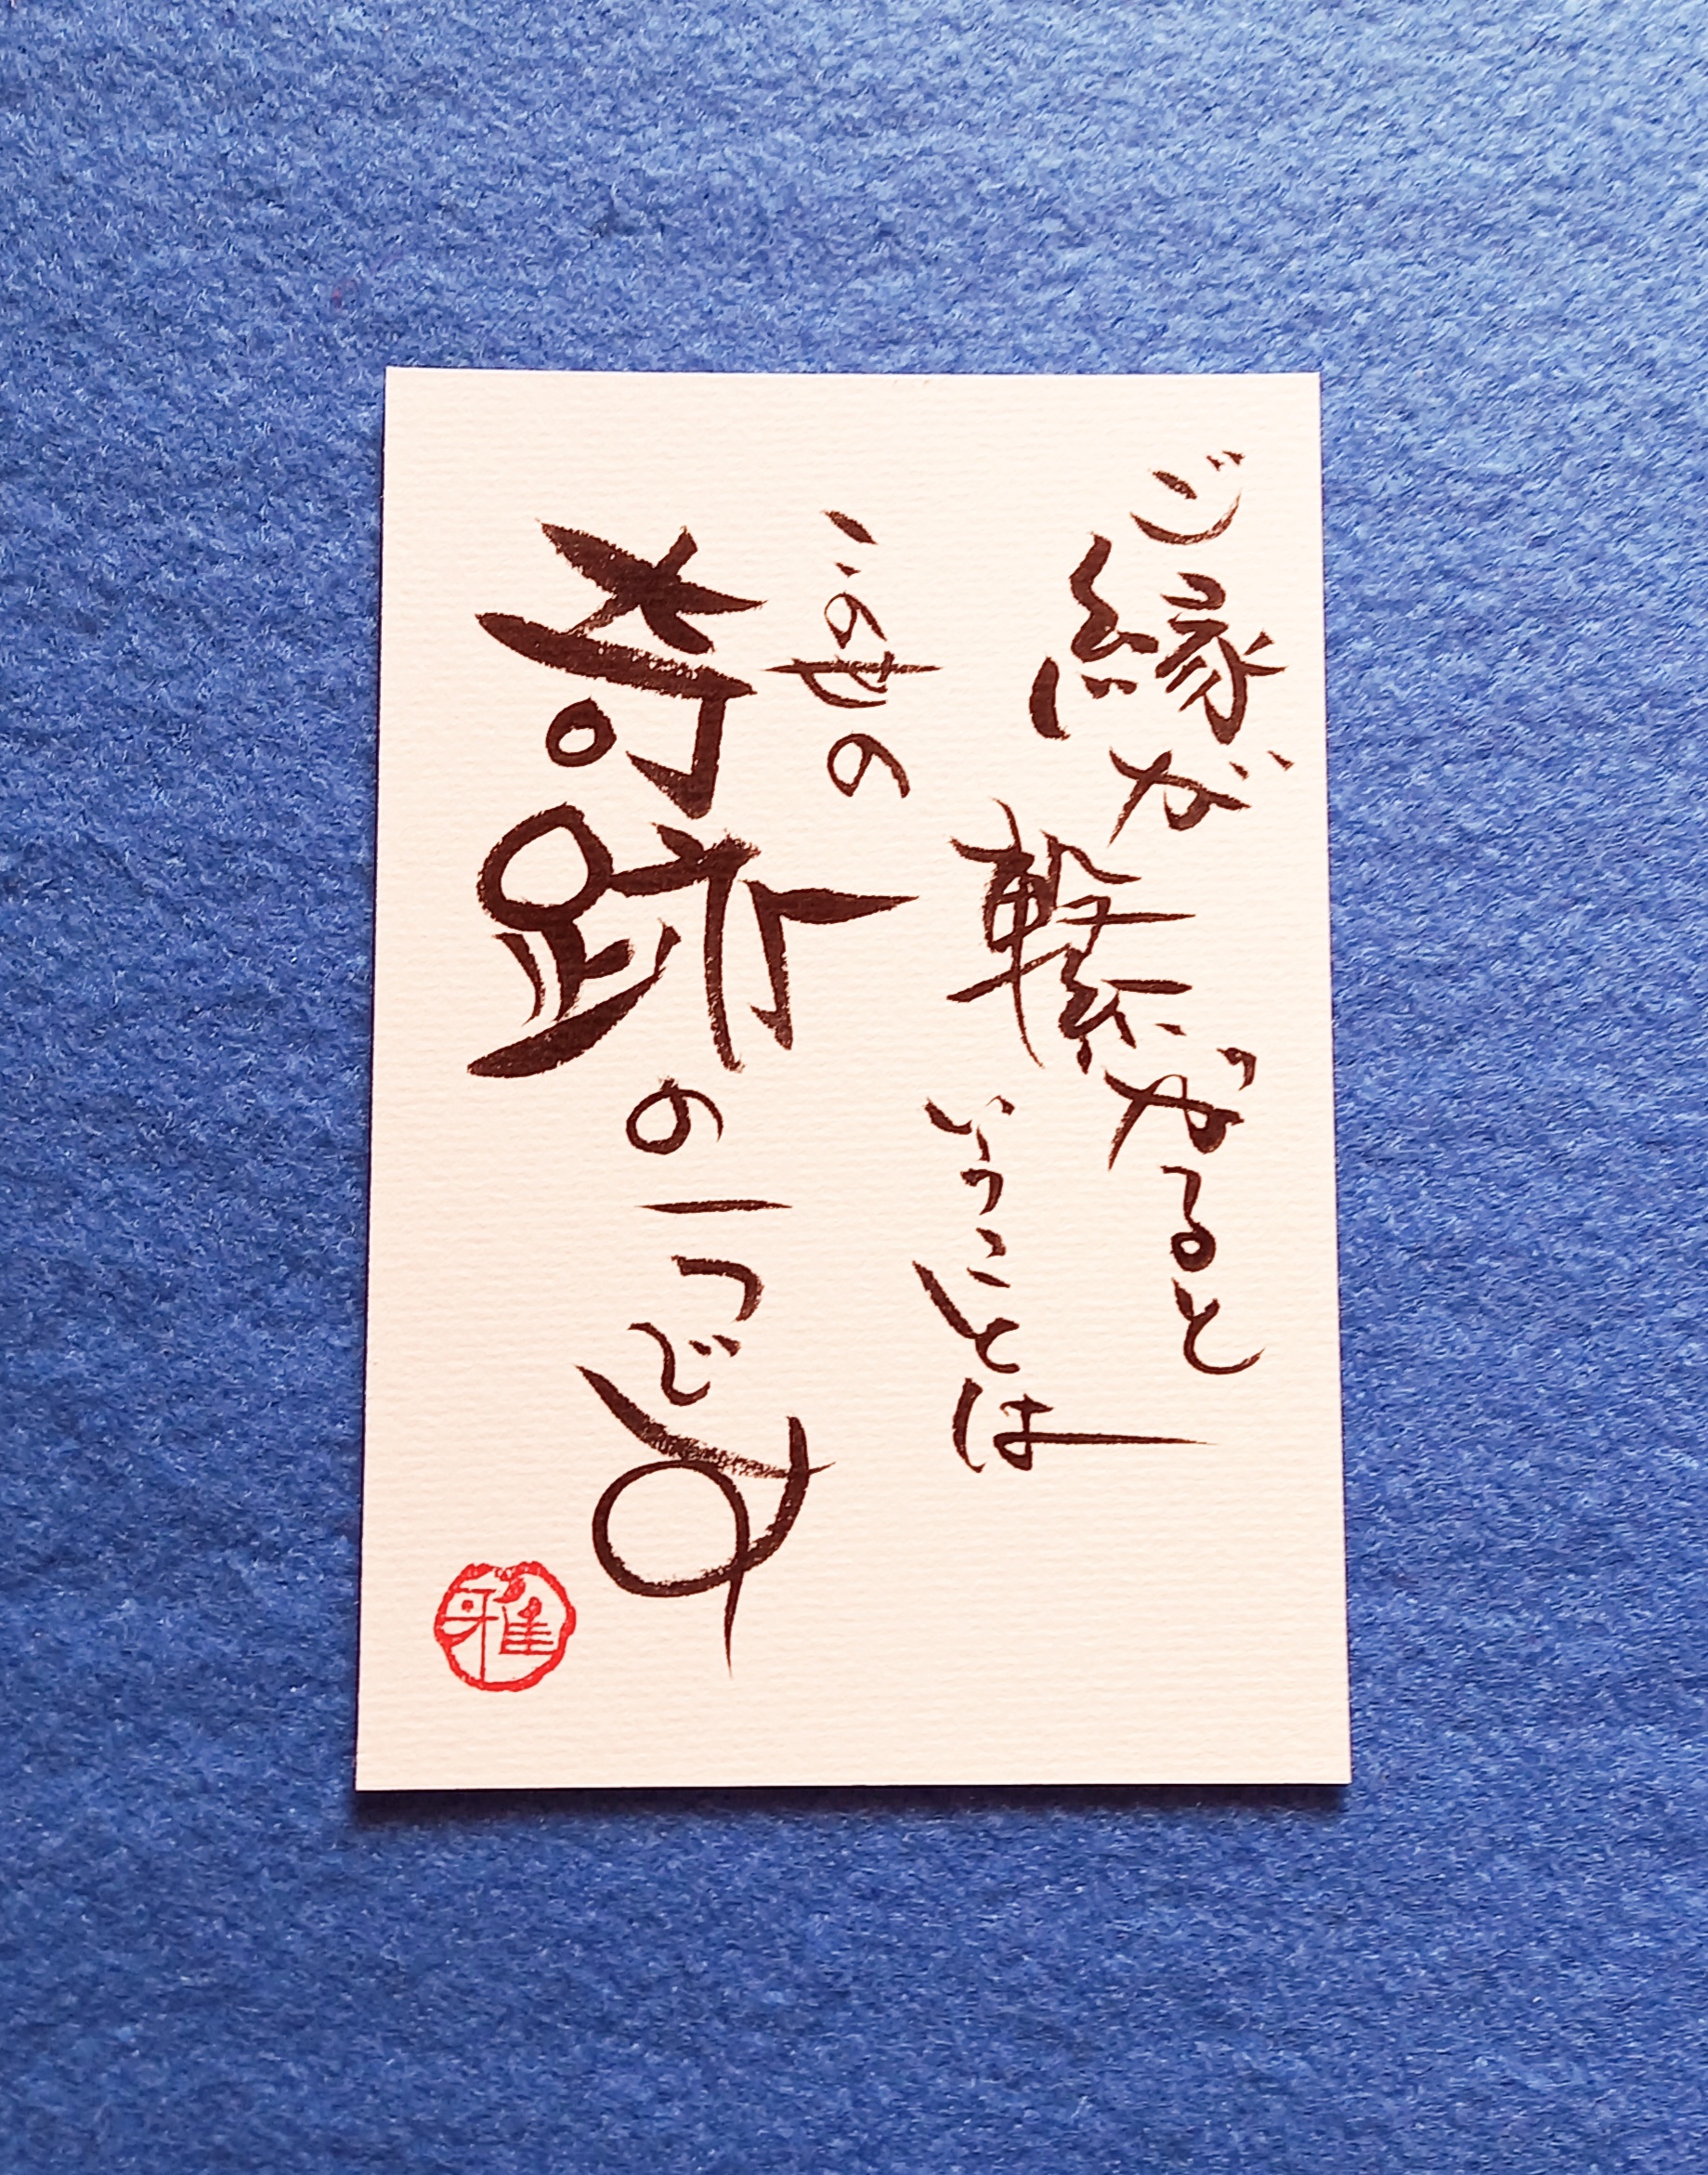 ご縁が繋がると
いうことは
この世の
奇跡の一つです
雅